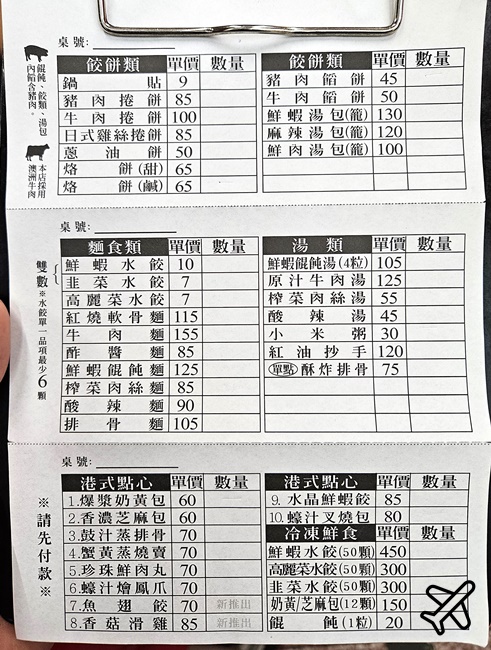 桌號:
餃餅類 單價 數量
鍋貼 9
豬肉捲餅 85
牛肉捲餅 100
日式雞絲捲餅 85
蔥油餅 50
烙餅(甜) 65
烙餅(鹹) 65
餃餅類 單價 數量
豬肉餡餅 45
牛肉餡餅 50
鮮蝦湯包(籠) 130
麻辣湯包(籠) 120
鮮肉湯包(籠) 100
餛飩、餃類、湯包
內餡含豬肉。
本店採用
澳洲牛肉
桌號:
麵食類 單價 數量
鮮蝦水餃 10
韭菜水餃 7
高麗菜水餃 7
紅燒軟骨麵 115
牛肉麵 155
酢醬麵 85
鮮蝦餛飩麵 125
榨菜肉絲麵 85
酸辣麵 90
排骨麵 105
湯類 單價 數量
鮮蝦餛飩湯(4粒) 105
原汁牛肉湯 125
榨菜肉絲湯 55
酸辣湯 45
小米粥 30
紅油抄手 120
單點 酥炸排骨 75
雙數
※水餃單一品項最少6顆
桌號:
港式點心 單價 數量
1.爆漿奶黃包 60
2.香濃芝麻包 60
3.鼓汁蒸排骨 70
4.蟹黃蒸燒賣 70
5.珍珠鮮肉丸 70
6.蠔汁燴鳳爪 70
7.魚翅餃 70 新推出
8.香菇滑雞 85 新推出
港式點心 單價 數量
9.水晶鮮蝦餃 85
10.蠔汁叉燒包 80
冷凍鮮食 單價 數量
鮮蝦水餃(50顆) 450
高麗菜水餃(50顆) 300
韭菜水餃(50顆) 300
奶黃/芝麻包(12顆) 150
餛飩(1粒) 20
※請先付款※